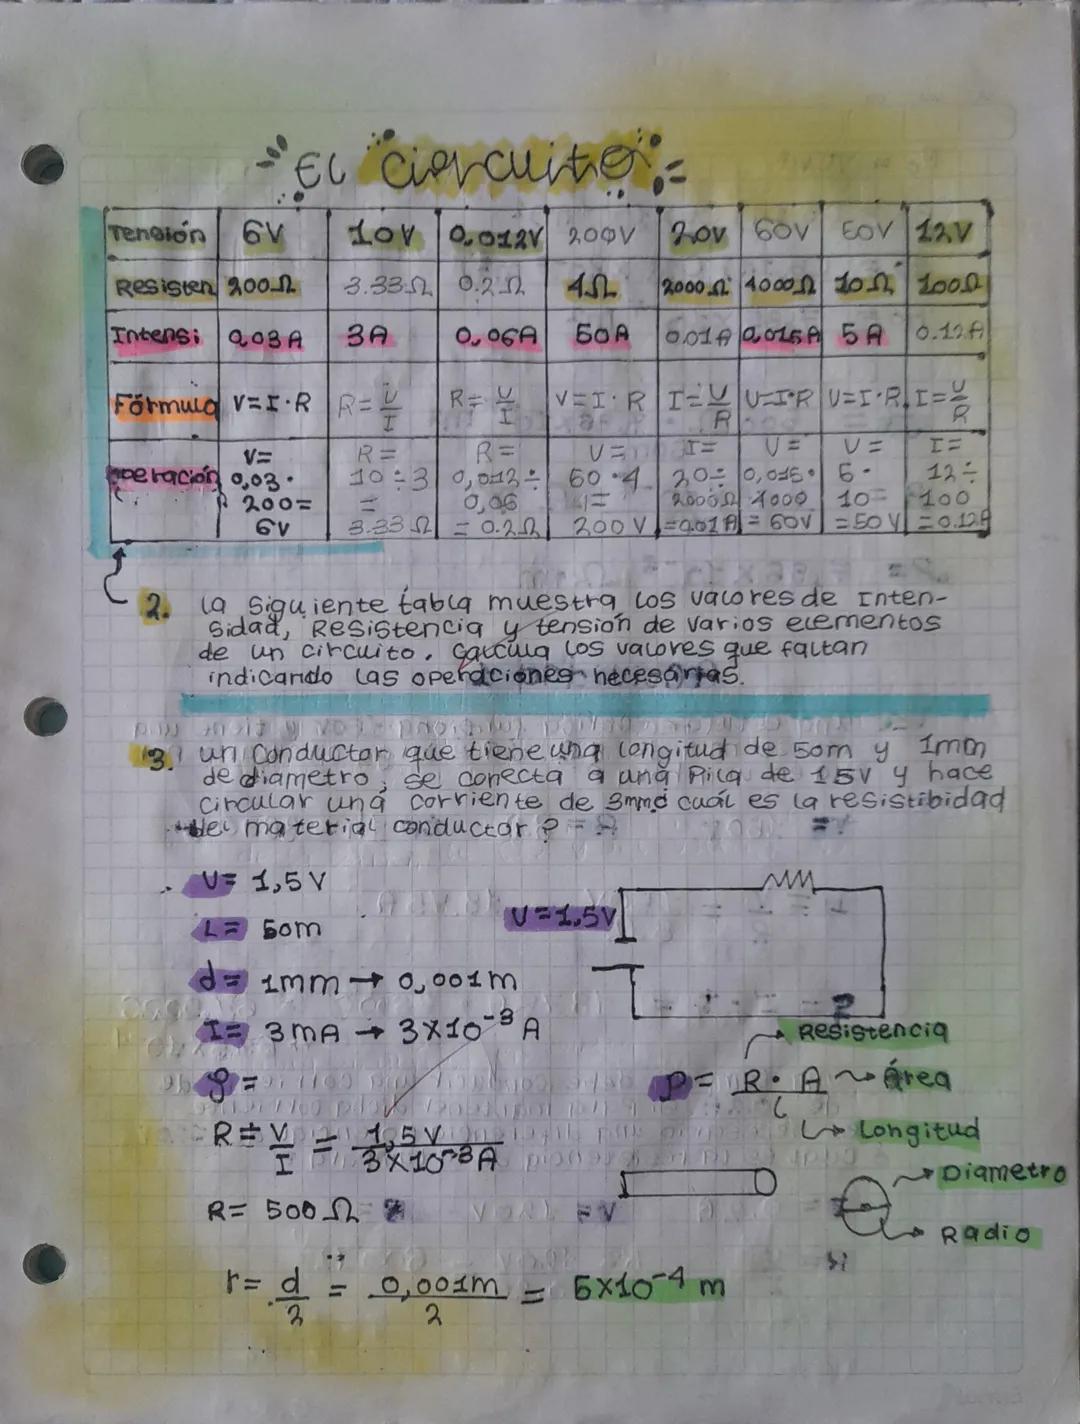 El circuito
Tensión 6V 10V 0,012V 200V 20V 60V 50V 12V
Resisten 200Ω 3.33Ω 0.2Ω 4Ω 2000Ω 4000Ω 10Ω 100Ω
Intensi 0,03A 3A 0,06A 50A 0.01A 0,015A 5A 0.12A
Fórmula V=I·R R=V/I R=V/I V=I·R I=V/R V=I·R V=I·R I=V/R
operación V= R= R= V= I= V= V= I=
0,03· 10÷3 0,012÷ 50·4 20÷ 0,015· 5· 12÷
200= = 0,06 = 2000Ω 4000 10 100
6V 3.33Ω =0.2Ω 200V =0.01A =60V =50V =0.12A
2. La siguiente tabla muestra los valores de Inten-
sidad, Resistencia y tensión de varios elementos
de un circuito. calcula los valores que faltan
indicando las operaciones necesarias.
3. un conductor que tiene una longitud de 50m y 1mm
de diametro, se conecta a una Pila de 15V y hace
circular una corriente de cuál es la resistibidad
del material conductor?
V= 1,5V
V=1.5V
L= 50m
d= 1mm → 0,001m
I= 3mA → 3x10⁻³ A
Resistencia
ρ=
ρ= R·A Área
L
Longitud
R= V = 1,5V
I 3x10⁻³A
Diametro
R= 500Ω
Radio
r= d = 0,001m = 5x10⁻⁴ m
2 2